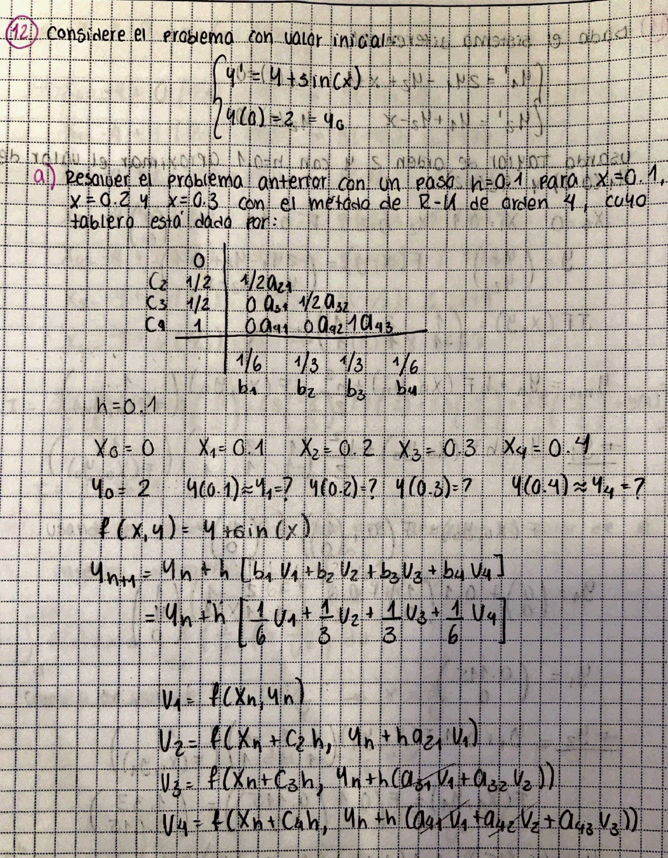 12) Considere el problema con valor inicial
{ y' = y + sin(x)
{ y(0) = 2 = y0
a) Resolver el problema anterior con un paso h=0.1, para x=0.1,
x=0.2 y x=0.3 con el método de R-K de orden 4, cuyo
tablero está dado por:
0
C2 1/2 | 1/2 a21
C3 1/2 | 0 a31 1/2 a32
C4 1 | 0 a41 0 a42 1 a43
1/6 1/3 1/3 1/6
b1 b2 b3 b4
h=0.1
X0=0 X1=0.1 X2=0.2 X3=0.3 X4=0.4
y0=2 y(0.1)≈y1=? y(0.2)=? y(0.3)=? y(0.4)≈y4=?
f(x,y) = y+sin(x)
yn+1 = yn + h [b1 V1 + b2 V2 + b3 V3 + b4 V4]
= yn + h [1/6 V1 + 1/3 V2 + 1/3 V3 + 1/6 V4]
V1 = f(Xn, yn)
V2 = f(Xn + C2 h, yn + h a21 V1)
V3 = f(Xn + C3 h, yn + h(a31 V1 + a32 V2))
V4 = f(Xn + C4 h, yn + h (a41 V1 + a42 V2 + a43 V3))